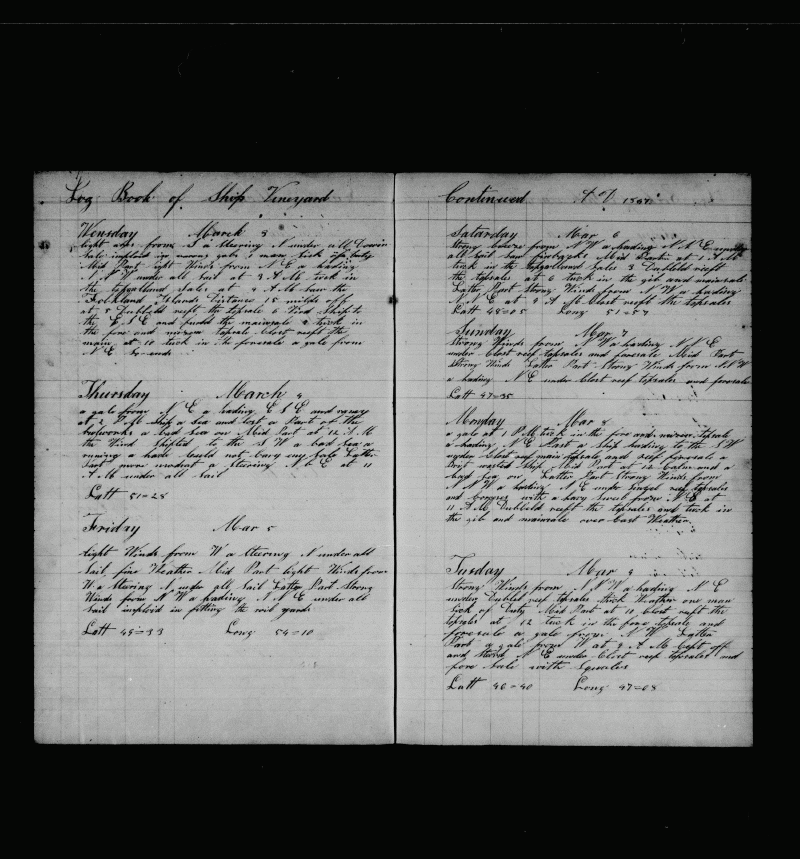 Log Book of Ship Vineyard
Wensday March 3
light airs from S a stering N under all Drawin
Sale imploid in
Mid Part light Winds from N E a heading
N N W under all Sail at 3 A M tuck in
the topgalland Sales at 4 A M Saw the
Folkland Islands Distance 15 milds off
at 5 Dubbeld reeft the topsale 6 Ship to
the E S E and furld the mainsale tuck in
the fore and mizen topsale Clost reeft the
main at 10 tuck in the foresale a gale from
N E So ends
Thursday March 4
a gale from N E a heading E S E and
at 2 P M Ship a Sea and lost a Part of the
a bad Sea on Mid Part at 12 A M
the Wind Shifted to the S W a bad Sea a
runing a head Could not Cary Sale Latter
Part more modent a Stearing N b E at 11
A M under all Sail
Latt 51=28
Friday Mar 5
light Winds from W a Stering N under all
Sail fine Weather Mid Part light Winds from
W a Stering N under all Sail Latter Part Strong
Winds from N W a heading N N E under all
Sail imploid in fitting the roil yards
Latt 49=33 Long 54=10
Continued
Satarday Mar 6
Strong breeze from N W a heading N N E under
all Sail Saw finbacks Mid Part at 1 A M
tuck in the topgalland Sales 3 Dubbeld reeft
the topsales at 6 tuck in the gib and mainsale
Latter Part Strong Winds from N W a heading
N N E at 9 A M Clost reeft the topsales
Latt 48=05 Long 51=57
Sunday Mar 7
Strong Winds from N W a heading N N E
under Clost reef topsales and foresale Mid Part
Strong Winds Latter Part Strong Winds from N N W
a heading N E under Clost reef topsales and foresale
Latt 47=35
Monday Mar 8
a gale at 1 P M tuck in the fore and mizen topsale
a heading N E Past a Ship heading to the S W
under Clost reef main topsale and reef foresale a
Ship Mid Part at 12 Calm and a
bad Sea on Latter Part Strong Winds from
N N W a heading N E under Singel reef topsales
and Corses with a havy Swell from N E at
11 A M Dubbeld reeft the topsales and tuck in
the gib and mainsale over Cast Weather
Tusday Mar 9
Strong Winds from N N W a heading N E
under Dubbel reef topsales thick Weather one man
Sick of Duty Mid Part at 11 Clost reeft the
topsales at 12 tuck in the fore topsale and
foresale a gale from N W Latter
Part a gale from W at 9 A M Kept off
and Sterd N E under Clost reef topsales and
fore Sale with Squales
Latt 46=40 Long 47=08